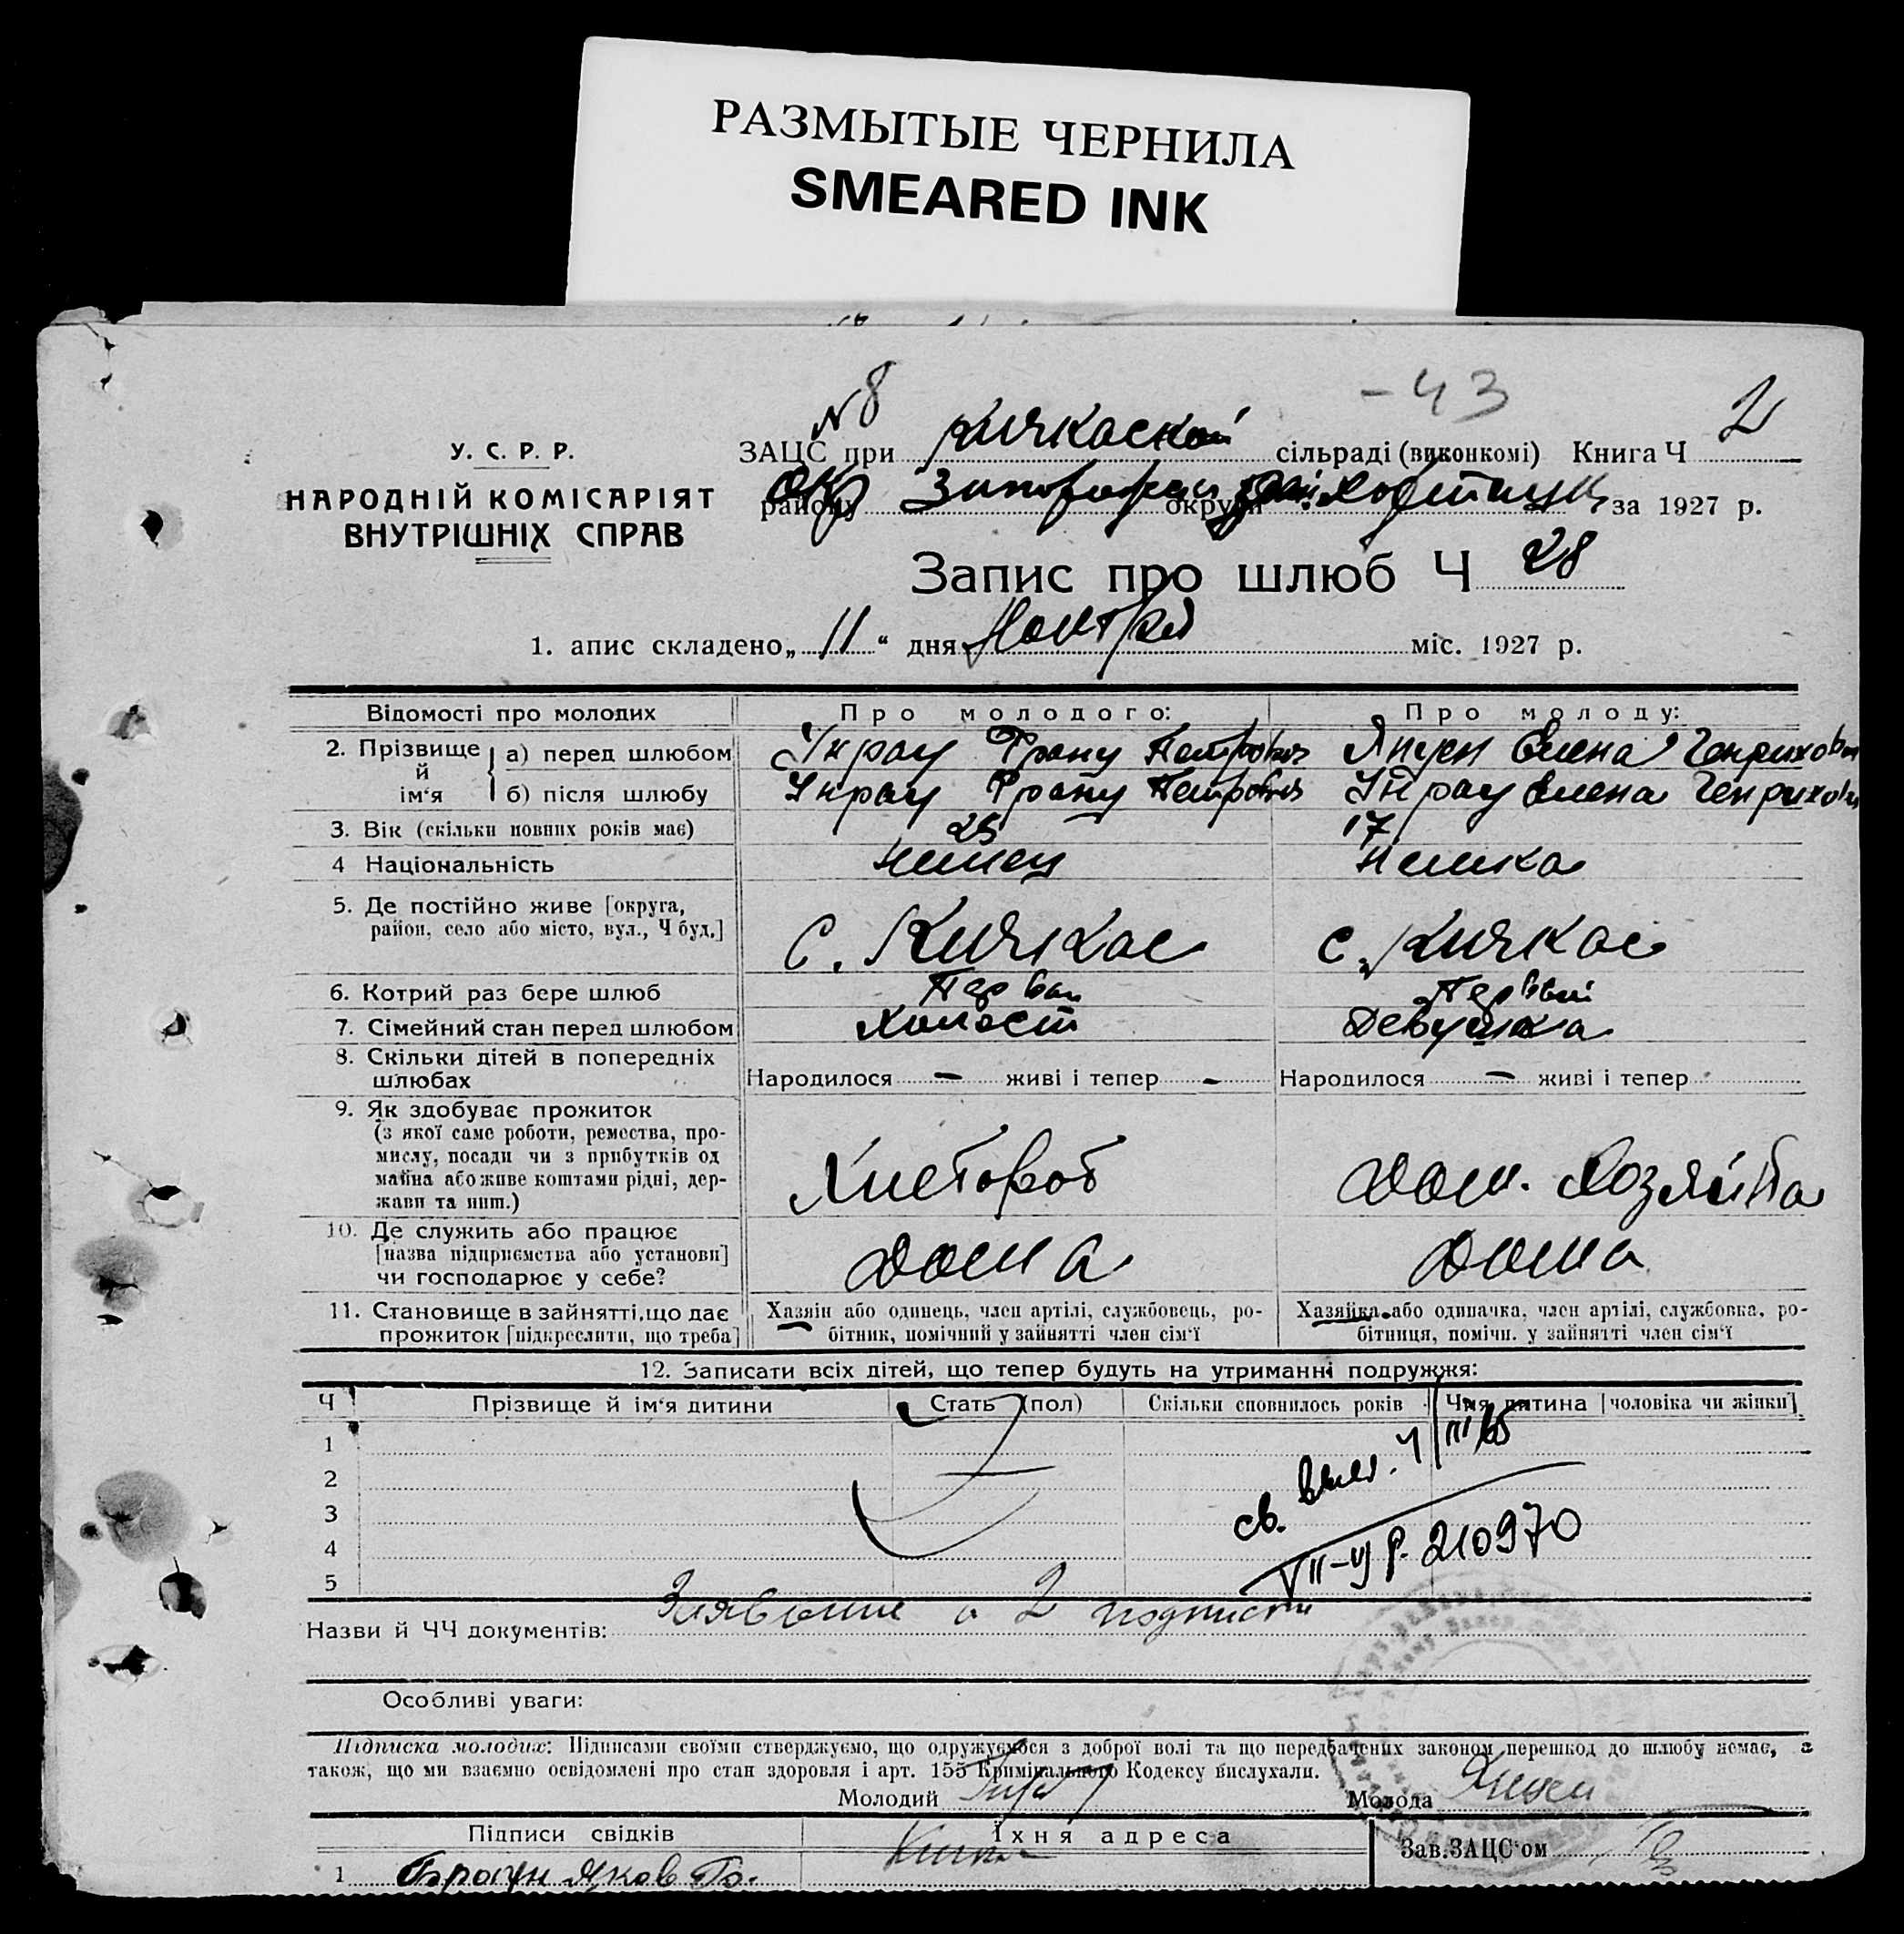 РАЗМЫТЫЕ ЧЕРНИЛА
SMEARED INK
- 43
N 8
У. С. Р. Р.
НАРОДНІЙ КОМІСАРІЯТ
ВНУТРІШНІХ СПРАВ
ЗАЦС при Кичкаской сільраді (виконкомі) Книга Ч 2
району округи за 1927 р.
Запис про шлюб Ч 28
1. апис складено „ 11 “ дня міс. 1927 р.
Відомості про молодих Про молодого: Про молоду:
2. Прізвище й ім‘я
а) перед шлюбом Унрау Франц Петрович Янцен Елена Генрихов
б) після шлюбу Унрау Франц Петрович Унрау Елена Генрихов
3. Вік (скільки повних років має) 25 17
4 Національність немец немка
5. Де постійно живе [округа,
район, село або місто, вул., Ч буд.] с. Кичкас с. Кичкас
6. Котрий раз бере шлюб Первый
7. Сімейний стан перед шлюбом Холост Девушка
8. Скільки дітей в попередніх
шлюбах Народилося — живі і тепер - Народилося — живі і тепер
9. Як здобуває прожиток
(з якої саме роботи, ремества, про-
мислу, посади чи з прибутків од
майна або живе коштами рідні, дер-
жави та инш.) Хлебороб Дом. Хозяйка
10. Де служить або працює
[назва підприємства або установи]
чи господарює у себе? дома дома
11. Становище в зайнятті, що дає
прожиток [підкреслити, що треба]
Хазяін або одинець, член артілі, службовець, ро-
бітник, помічний у зайнятті член сім‘ї
Хазяйка або одиначка, член артілі, службовка, ро-
бітниця, помічн. у зайнятті член сім‘ї
12. Записати всіх дітей, що тепер будуть на утриманні подружжя:
Ч Прізвище й ім‘я дитини Стать (пол) Скільки сповнилось років Чия дитина [чоловіка чи жінки]
1
2
3
4
5
св. выд. 4/III 65
210970
Назви й ЧЧ документів: Заявление и 2 подписи
Особливі уваги:
Підписка молодих: Підписами своїми стверджуємо, що одружуємося з доброї волі та що передбачених законом перешкод до шлюбу немає, а
також, що ми взаємно освідомлені про стан здоровля і арт. 155 Кримінального Кодексу вислухали.
Молодий Молода Янцен
Підписи свідків Їхня адреса Зав. ЗАЦС‘ом
1 Браун Яков